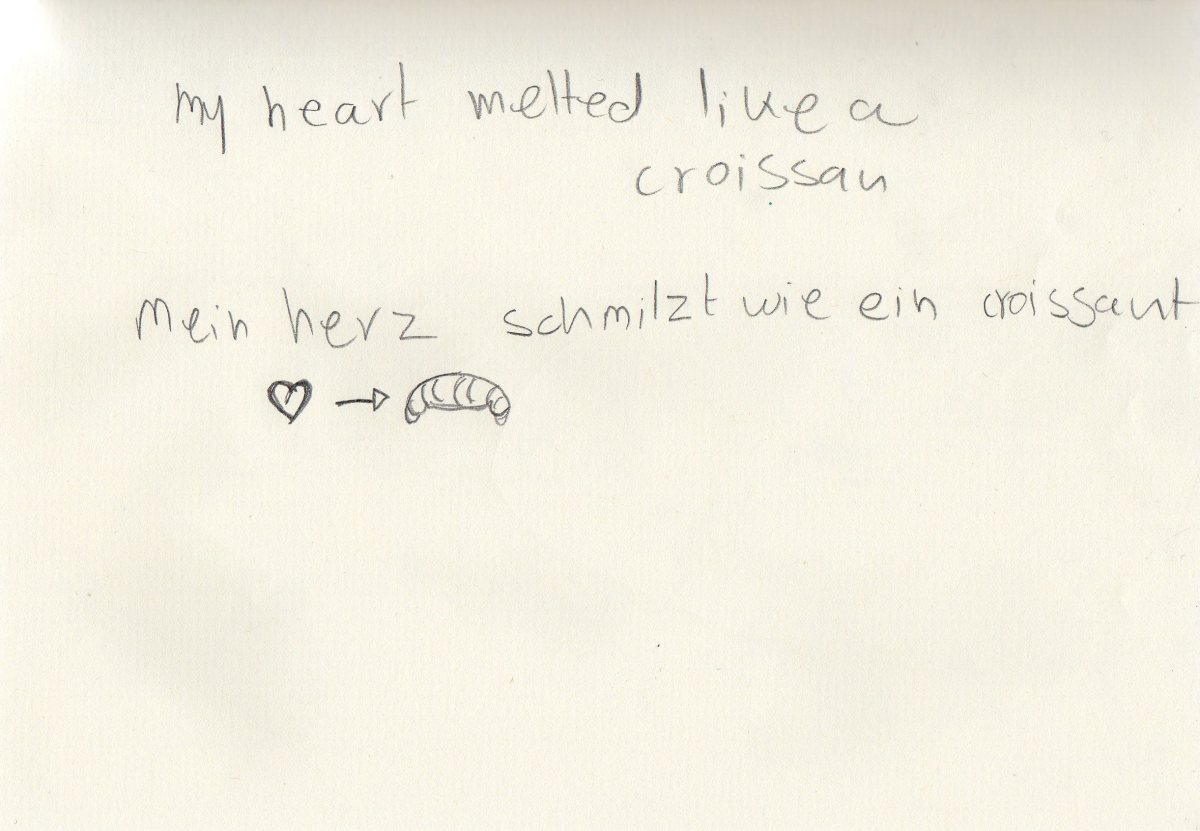 my heart melted like a
croissan
Mein herz schmilzt wie ein croissant